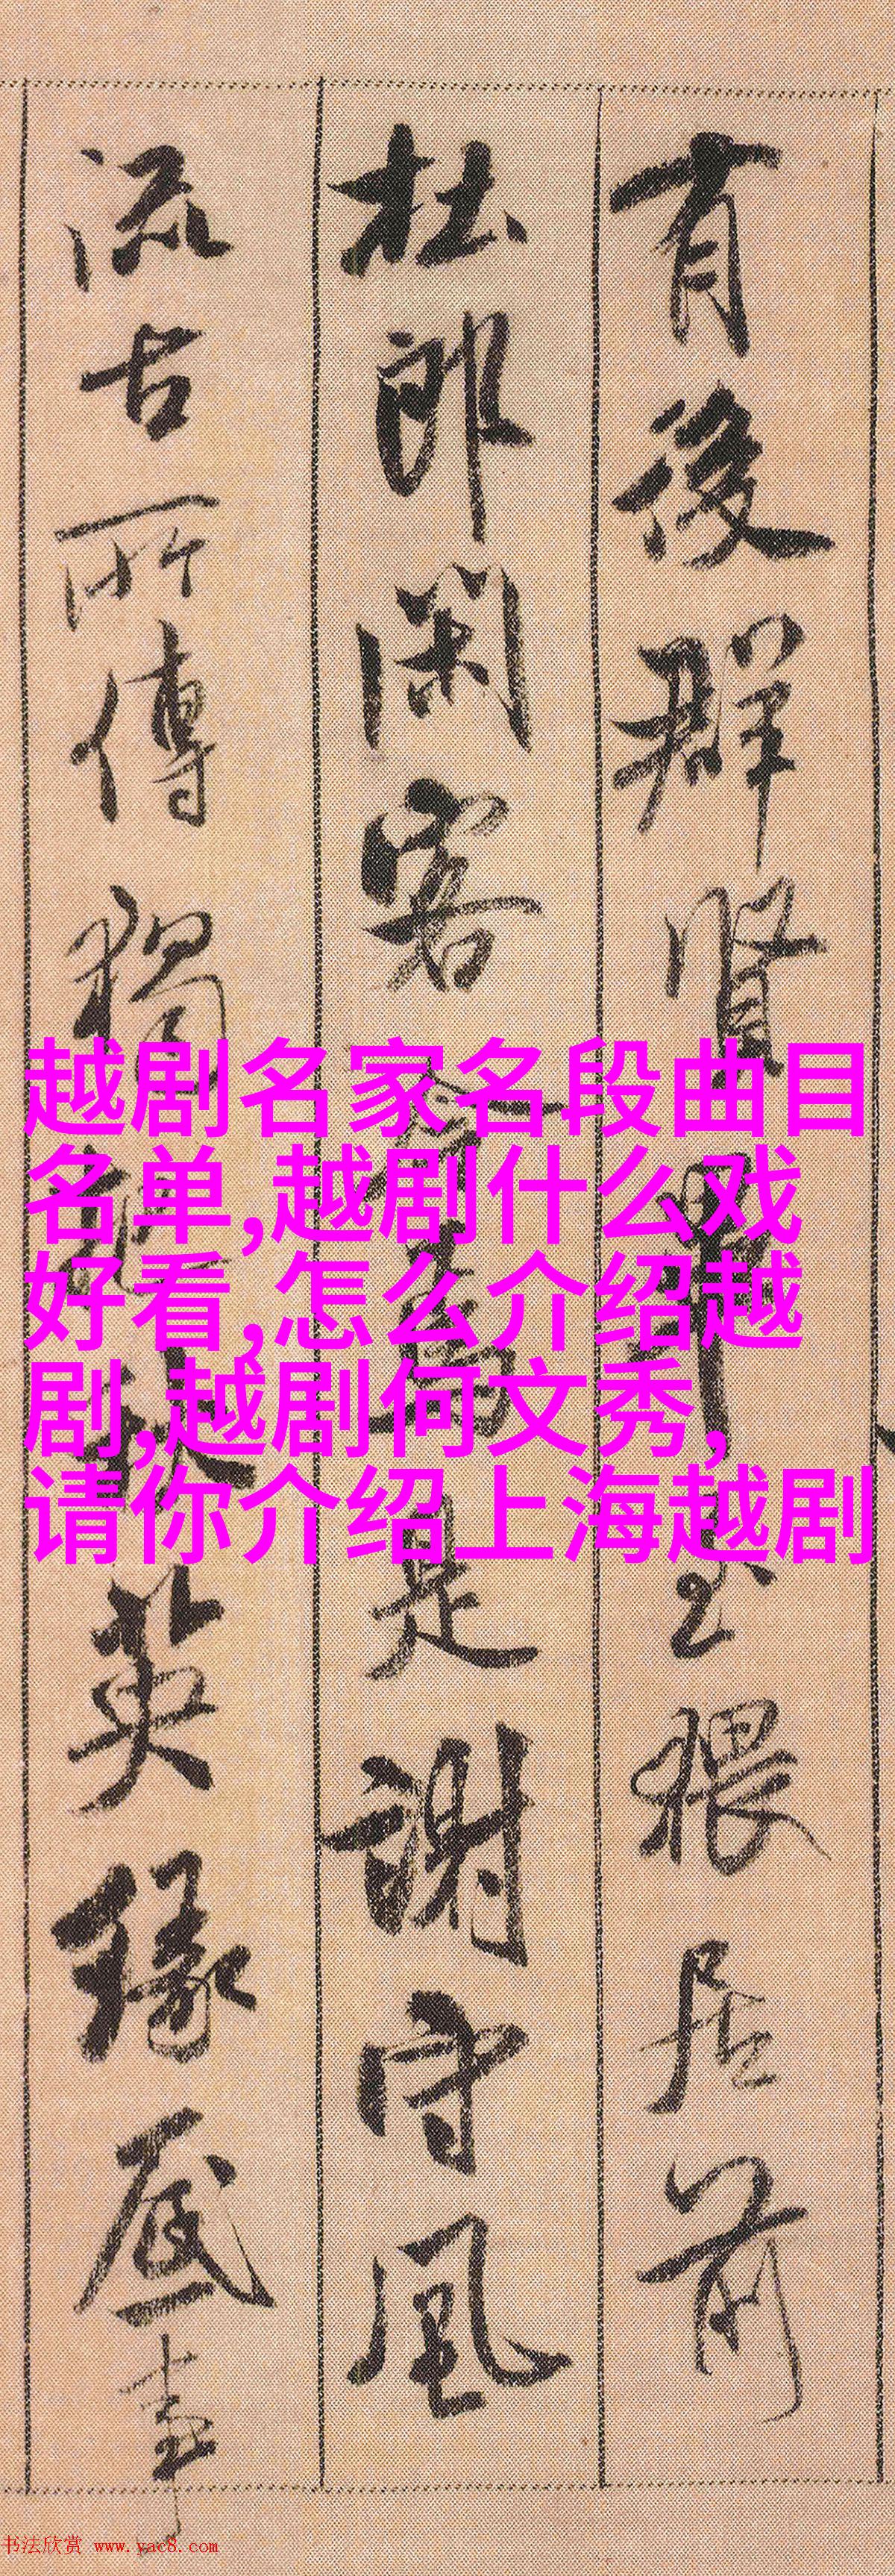 有後群賢畢至猥居前
杜郎閑客今焉是謝守風
流古所傳獨把秋英緣底事
越剧名家名段曲目
名单,越剧什么戏
好看,怎么介绍越
剧,越剧何文秀,
请你介绍上海越剧
书法欣赏 www.yac8.com